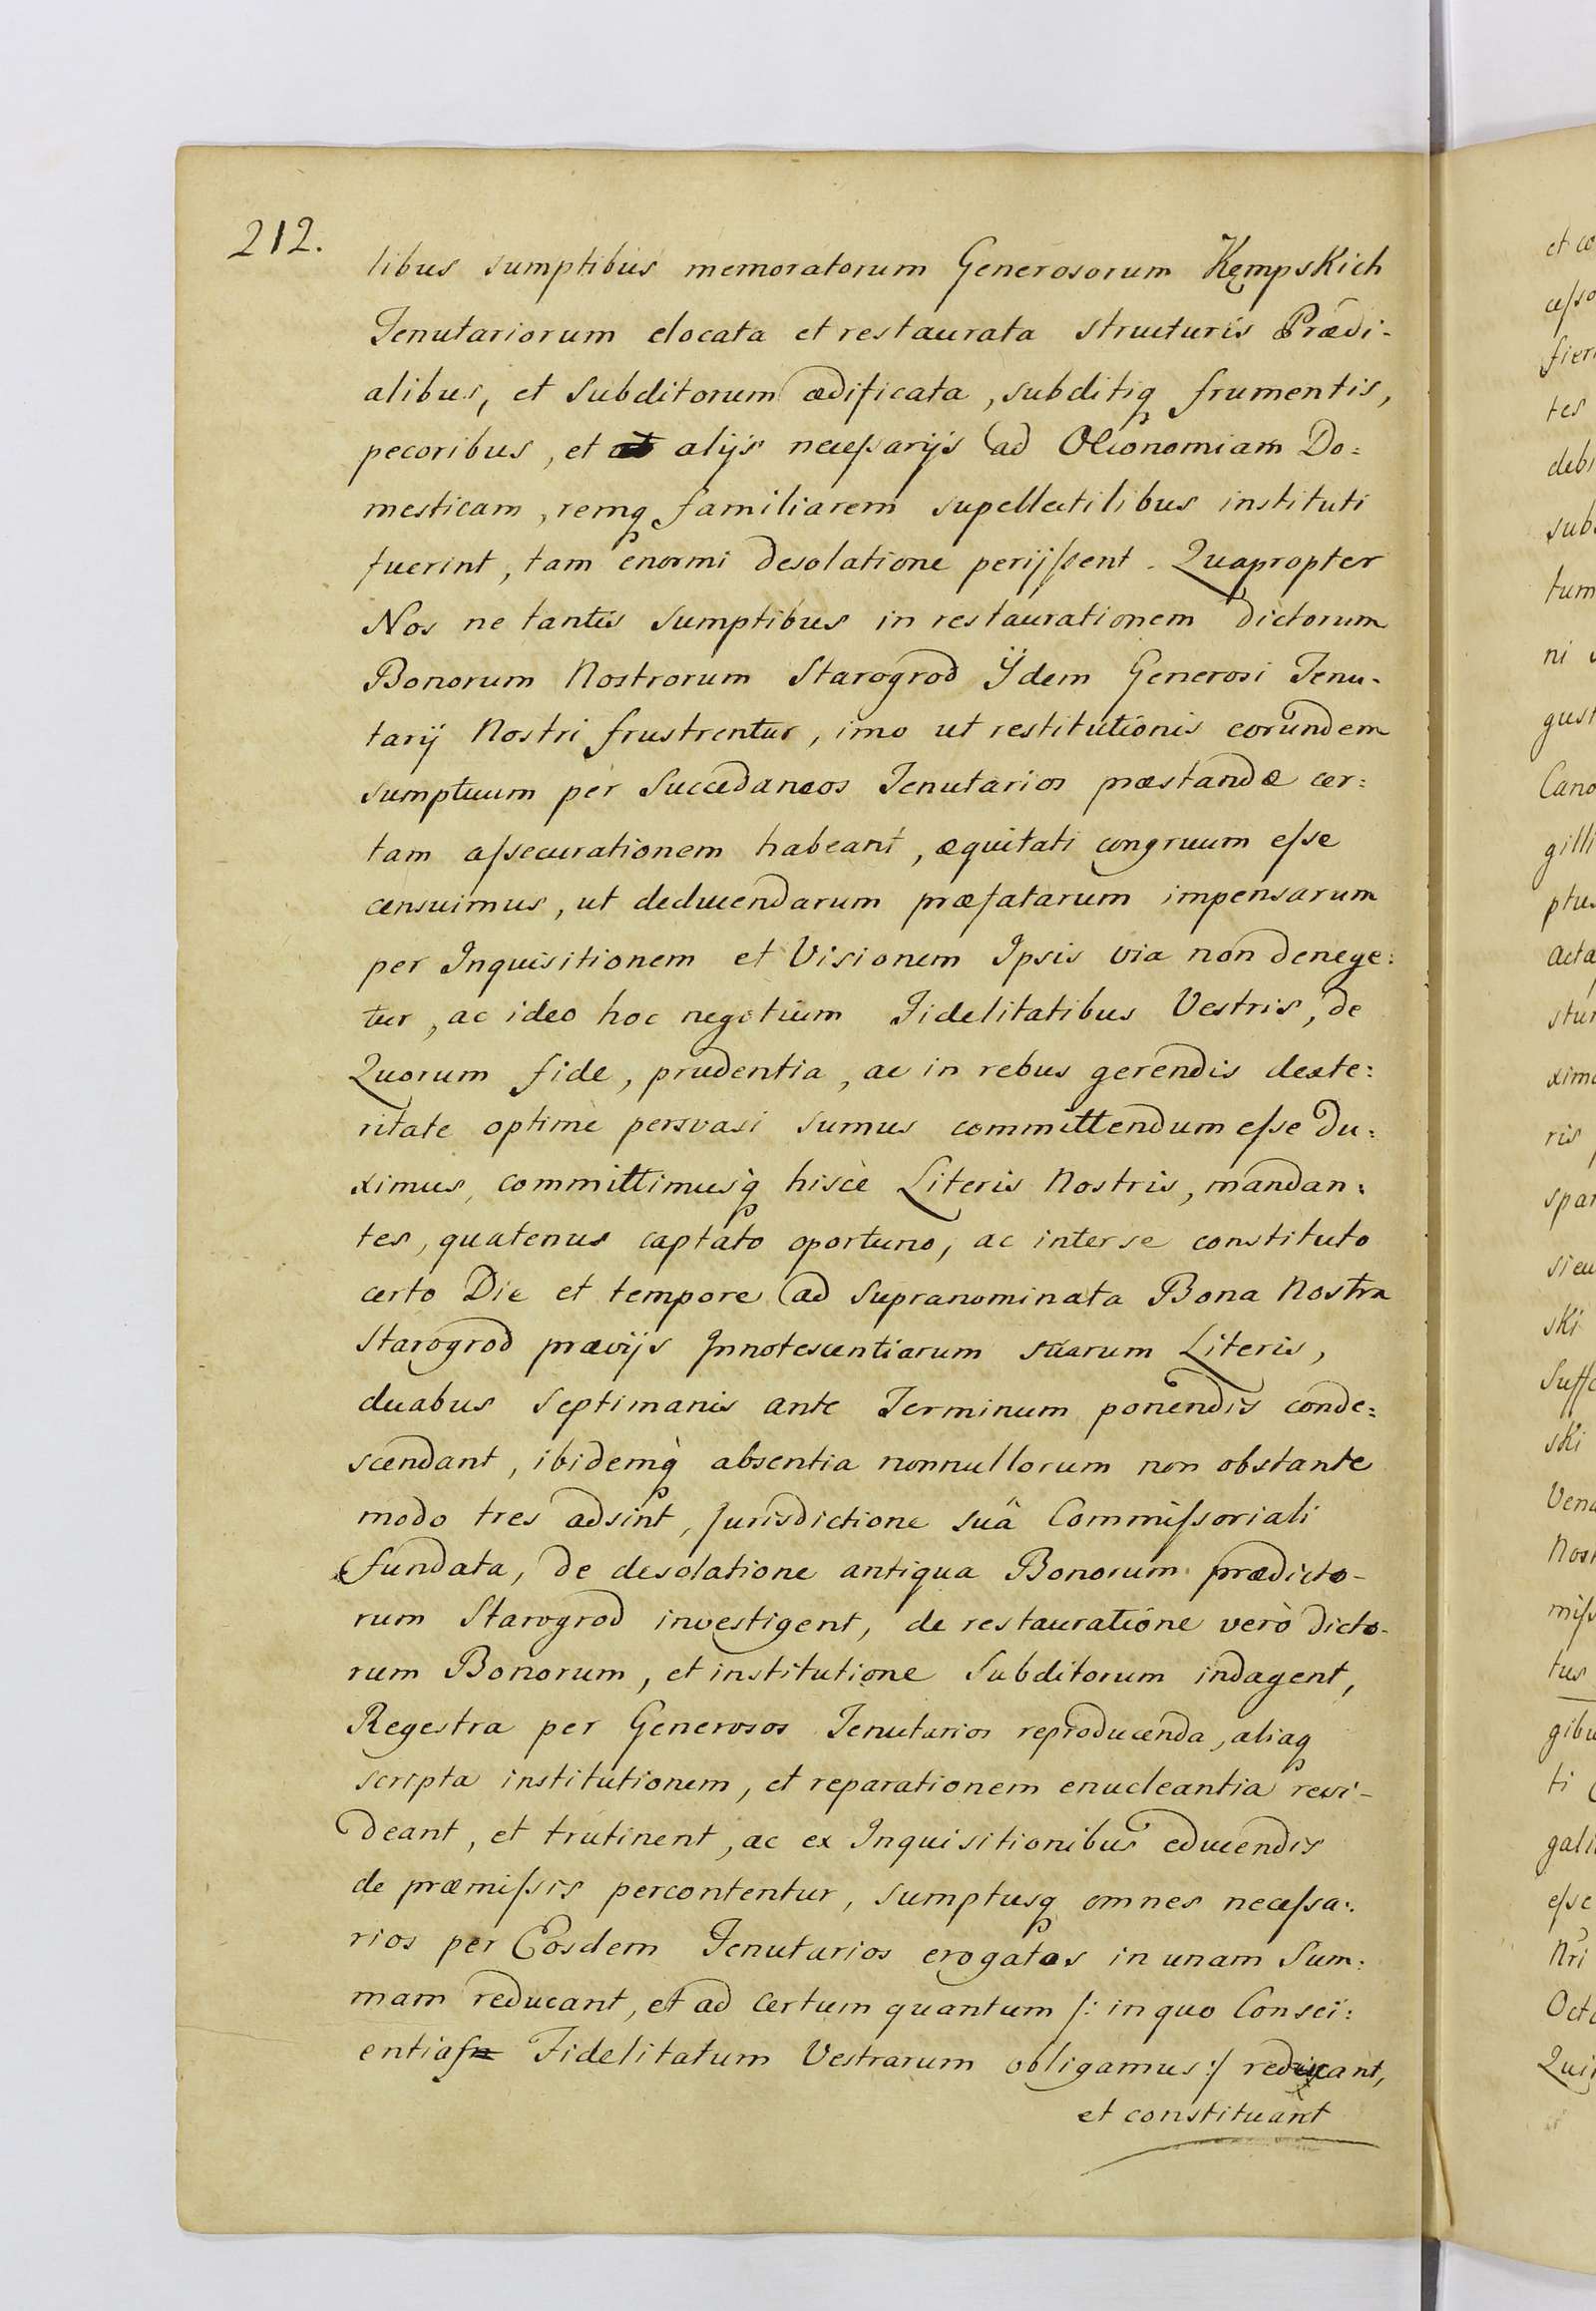 212.
tibus sumptibus memoratorum Generosorum Kęmpskich
Tenutariorum elocata et restaurata structuris Prædi-
alibus, et Subditorum ædificata, subditiq frumentis,
pecoribus, et alijs necessarijs ad Oeconomiam Do:
mesticam, remq familiarem supellectilibus instituti
fuerint, tam enormi desolatione perijssent. Quapropter
Nos ne tantis sumptibus in restaurationem dictorum
Bonorum Nostrorum Starogrod Ijdem Generosi Tenu-
tarij Nostri frustrentur, imo ut restitutionis eorundem
sumptuum per Succedaneos Tenutarios præstandæ cer:
tam assecurationem habeant, æquitati congruum esse
censuimus, ut deducendarum præfatarum impensarum
per Inquisitionem et Visionem Ipsis via non denege:
tur, ac ideo hoc negotium Fidelitatibus Vestris, de
Quorum fide, prudentia, ac in rebus gerendis dexte:
ritate optimè persvasi sumus committendum esse du:
ximus, committimusq hisce Literis Nostris, mandan:
tes, quatenus captato oportuno, ac inter se constituto
certo Die et tempore ad Supranominata Bona Nostra
Starogrod prævijs Innotescentiarum suarum Literis,
duabus Septimanis ante Terminum ponendis conde:
scendant, ibidemq absentia nonnullorum non obstante
modo tres adsint, Jurisdictione suâ Commissoriali
fundata, de desolatione antiqua Bonorum prædicto-
rum Starogrod investigent, de restauratione verò dicto-
rum Bonorum, et institutione Subditorum indagent,
Regestra per Generosos Tenutarios reproducenda, aliaq
scripta institutionem, et reparationem enucleantia revi-
deant, et trutinent, ac ex Inquisitionibus educendis
de præmissis percontentur, sumptusq omnes necessa:
rios per Eosdem Tenutarios erogatos in unam Sum:
mam reducant, et ad certum quantum /: in quo Consci:
entias Fidelitatum Vestrarum obligamus :/ reducant,
et constituant